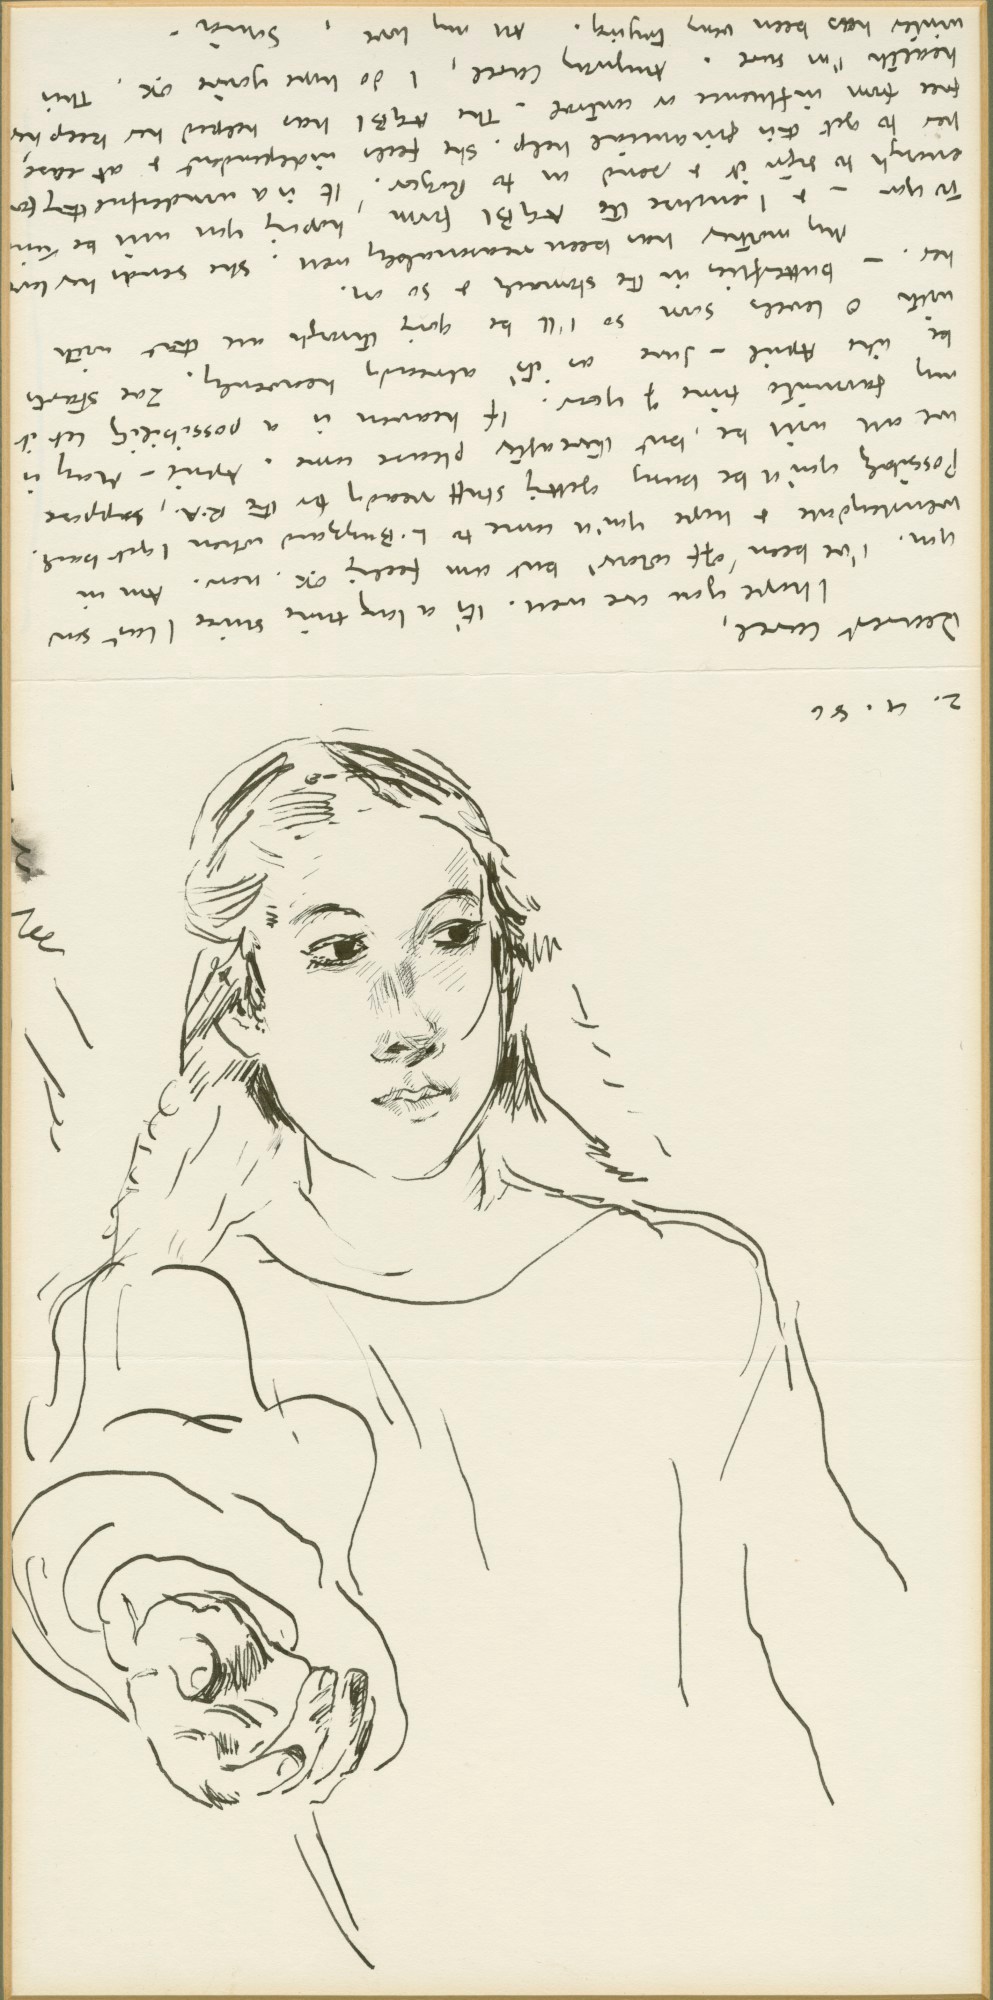 2. 4. 86
Dearest Carel,
I hope you are well. It's a long time since I last saw
you. I've been 'off colour' but am feeling OK. now. Am in
Wensleydale & hope you'll come to L. Buzzard when I get back.
Possibly you'll be busy getting stuff ready for the R.A., suppose
we all will be, but thereafter please come. April – May is
my favourite time of year. If heaven is a possibility let it
be like April – June as it's already heavenly. Zoe starts
with O levels soon so I'll be going through all that with
her. – butterflies in the stomach & so on.
My mother has been reasonably well; she sends her love
to you – & I enclose the AGBI form, hoping you will be kind
enough to sign it & send on to Roger. It is a wonderful thing for
her to get this financial help. She feels independent & at ease,
free from influence or control – The AGBI has helped her keep her
health I'm sure. Anyway Carel, I do hope you're OK. This
winter has been very trying. All my love,